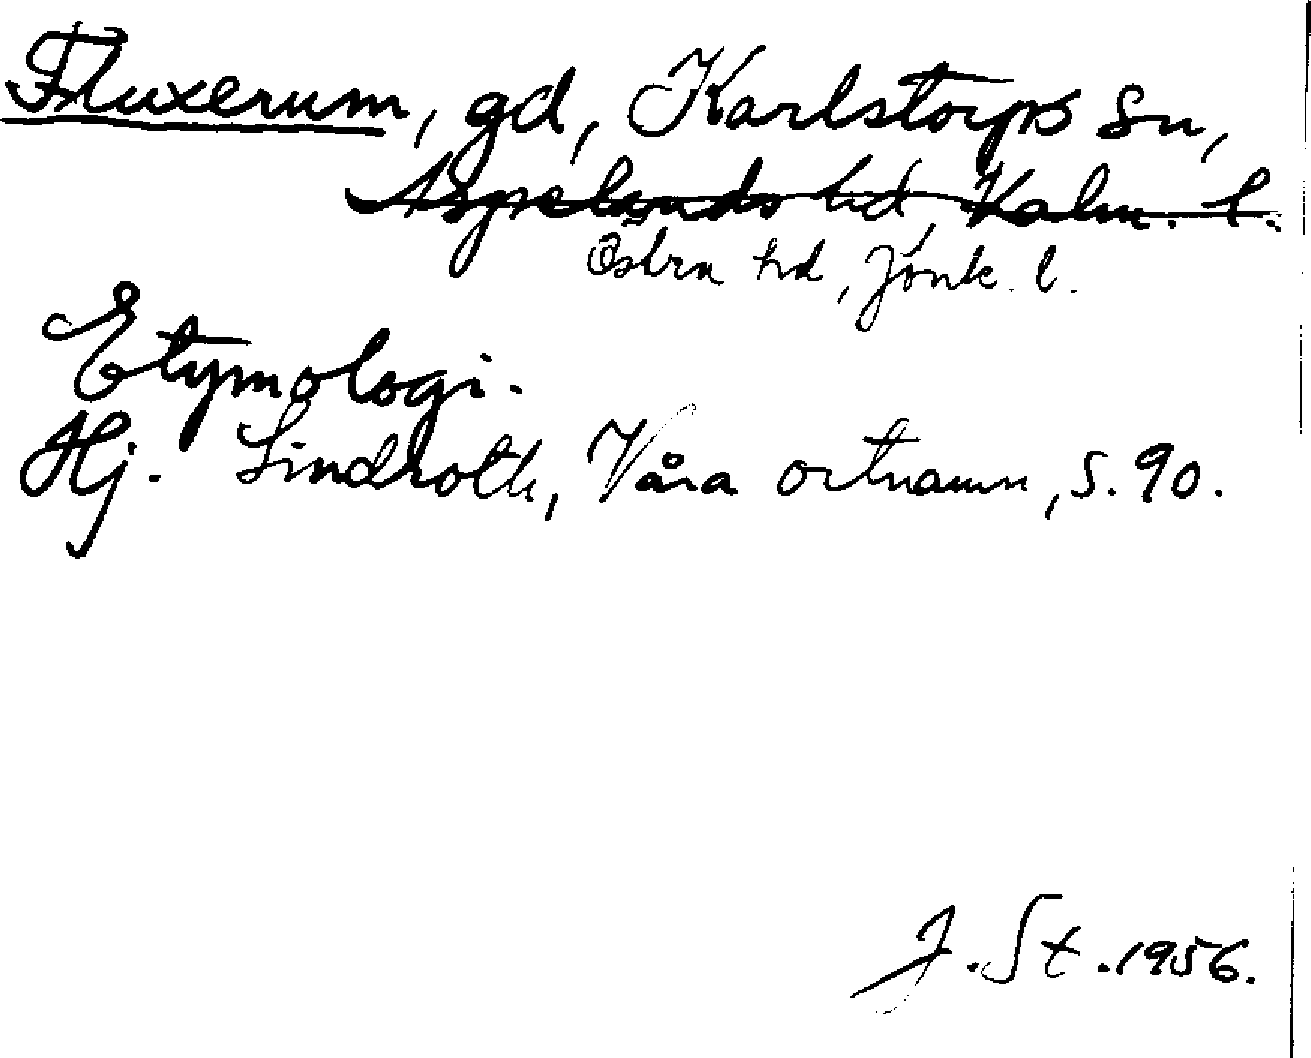 Fluxerum, gd, Karlstorps sn,
Aspelands hd, Kalm. l.
Östra hd, Jönk. l.
Etymologi.
Hj. Lindroth, Våra ortnamn, s. 90.
J. St. 1956.